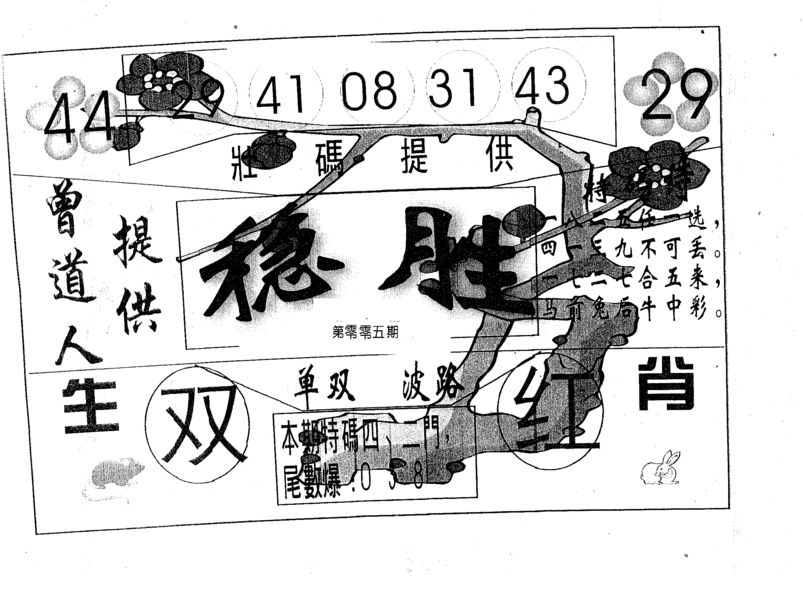 44 29 41 08 31 43 29
壯碼提供
曾道人
提供
稳胜
第零零五期
特
四一三九不可丢。
一七二七合五来，
马前兔后牛中彩。
单双 波路
生 双 红 肖
本期特碼四、二門，
尾數爆：0 3 8